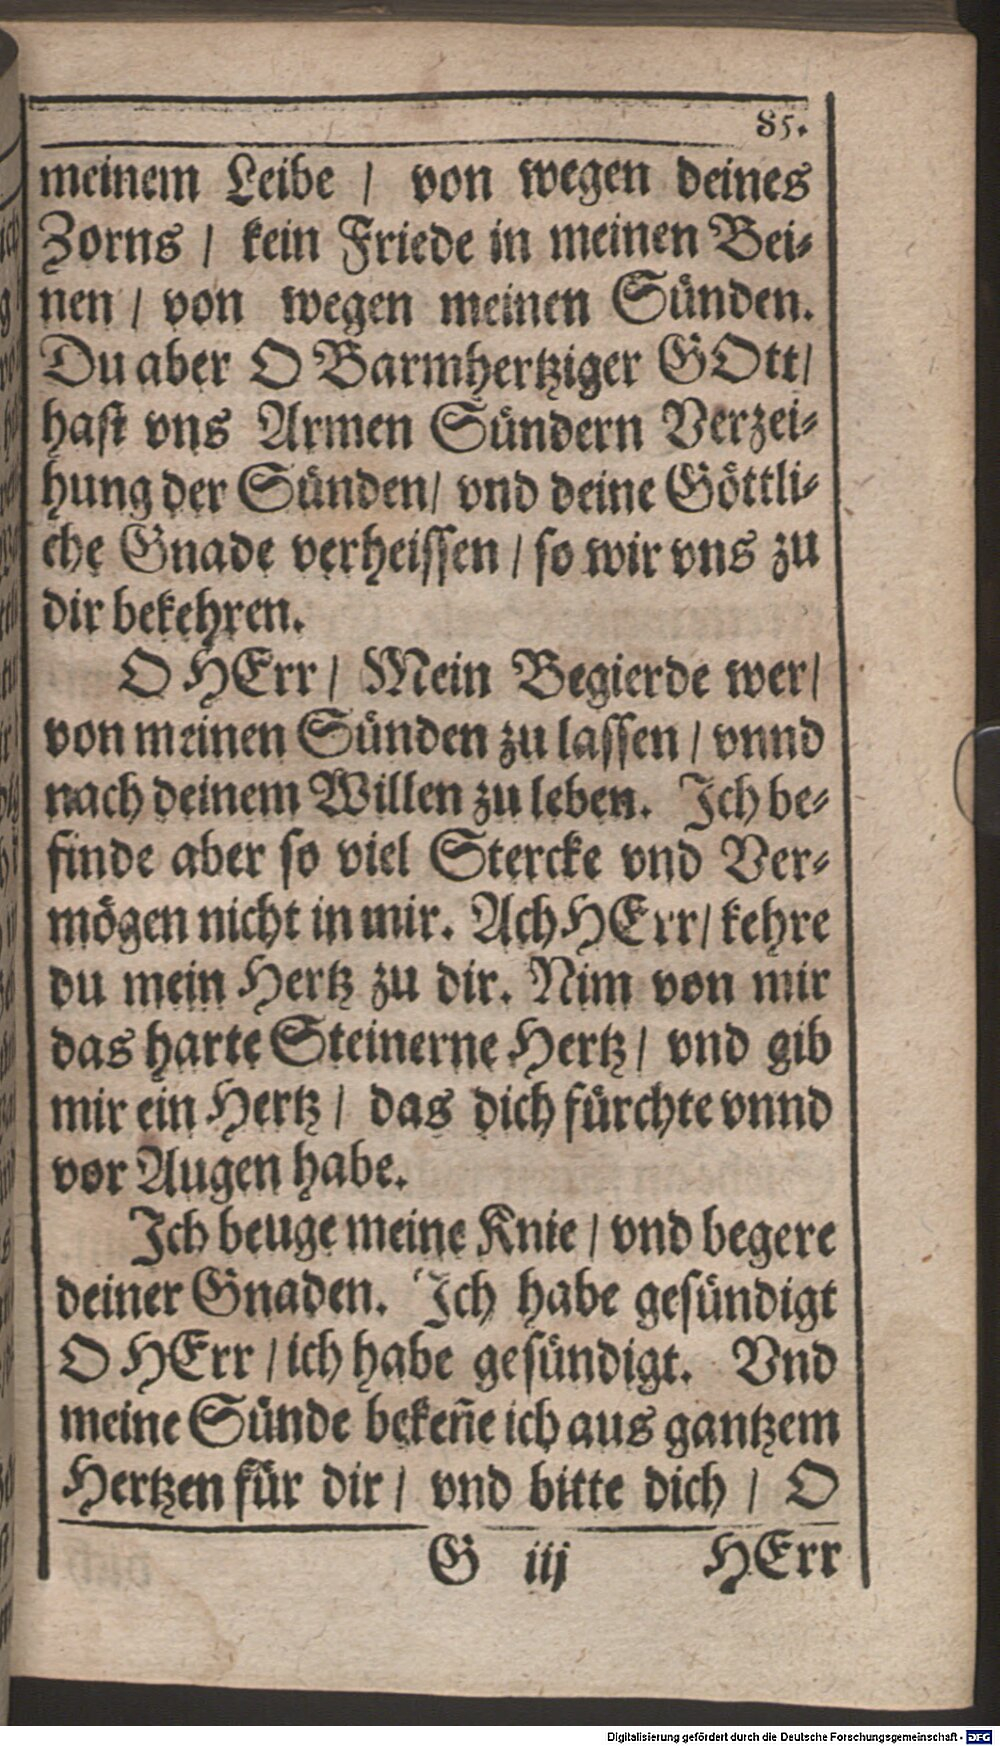 85.
meinem Leibe / von wegen deines
Zorns / kein Friede in meinen Bei-
nen / von wegen meinen Sünden.
Du aber O Barmhertziger GOtt/
hast vns Armen Sündern Verzei-
hung der Sünden/ vnd deine Göttli-
che Gnade verheissen / so wir vns zu
dir bekehren.
O HErr/ Mein Begierde wer/
von meinen Sünden zu lassen / vnnd
nach deinem Willen zu leben. Ich be-
finde aber so viel Stercke vnd Ver-
mögen nicht in mir. Ach HErr/ kehre
du mein Hertz zu dir. Nim von mir
das harte Steinerne Hertz/ vnd gib
mir ein Hertz/ das dich fürchte vnnd
vor Augen habe.
Ich beuge meine Knie / vnd begere
deiner Gnaden. Ich habe gesündigt
O HErr / ich habe gesündigt. Vnd
meine Sünde bekeñe ich aus gantzem
Hertzen für dir / vnd bitte dich / O
G iij HErr
Digitalisierung gefördert durch die Deutsche Forschungsgemeinschaft - DFG